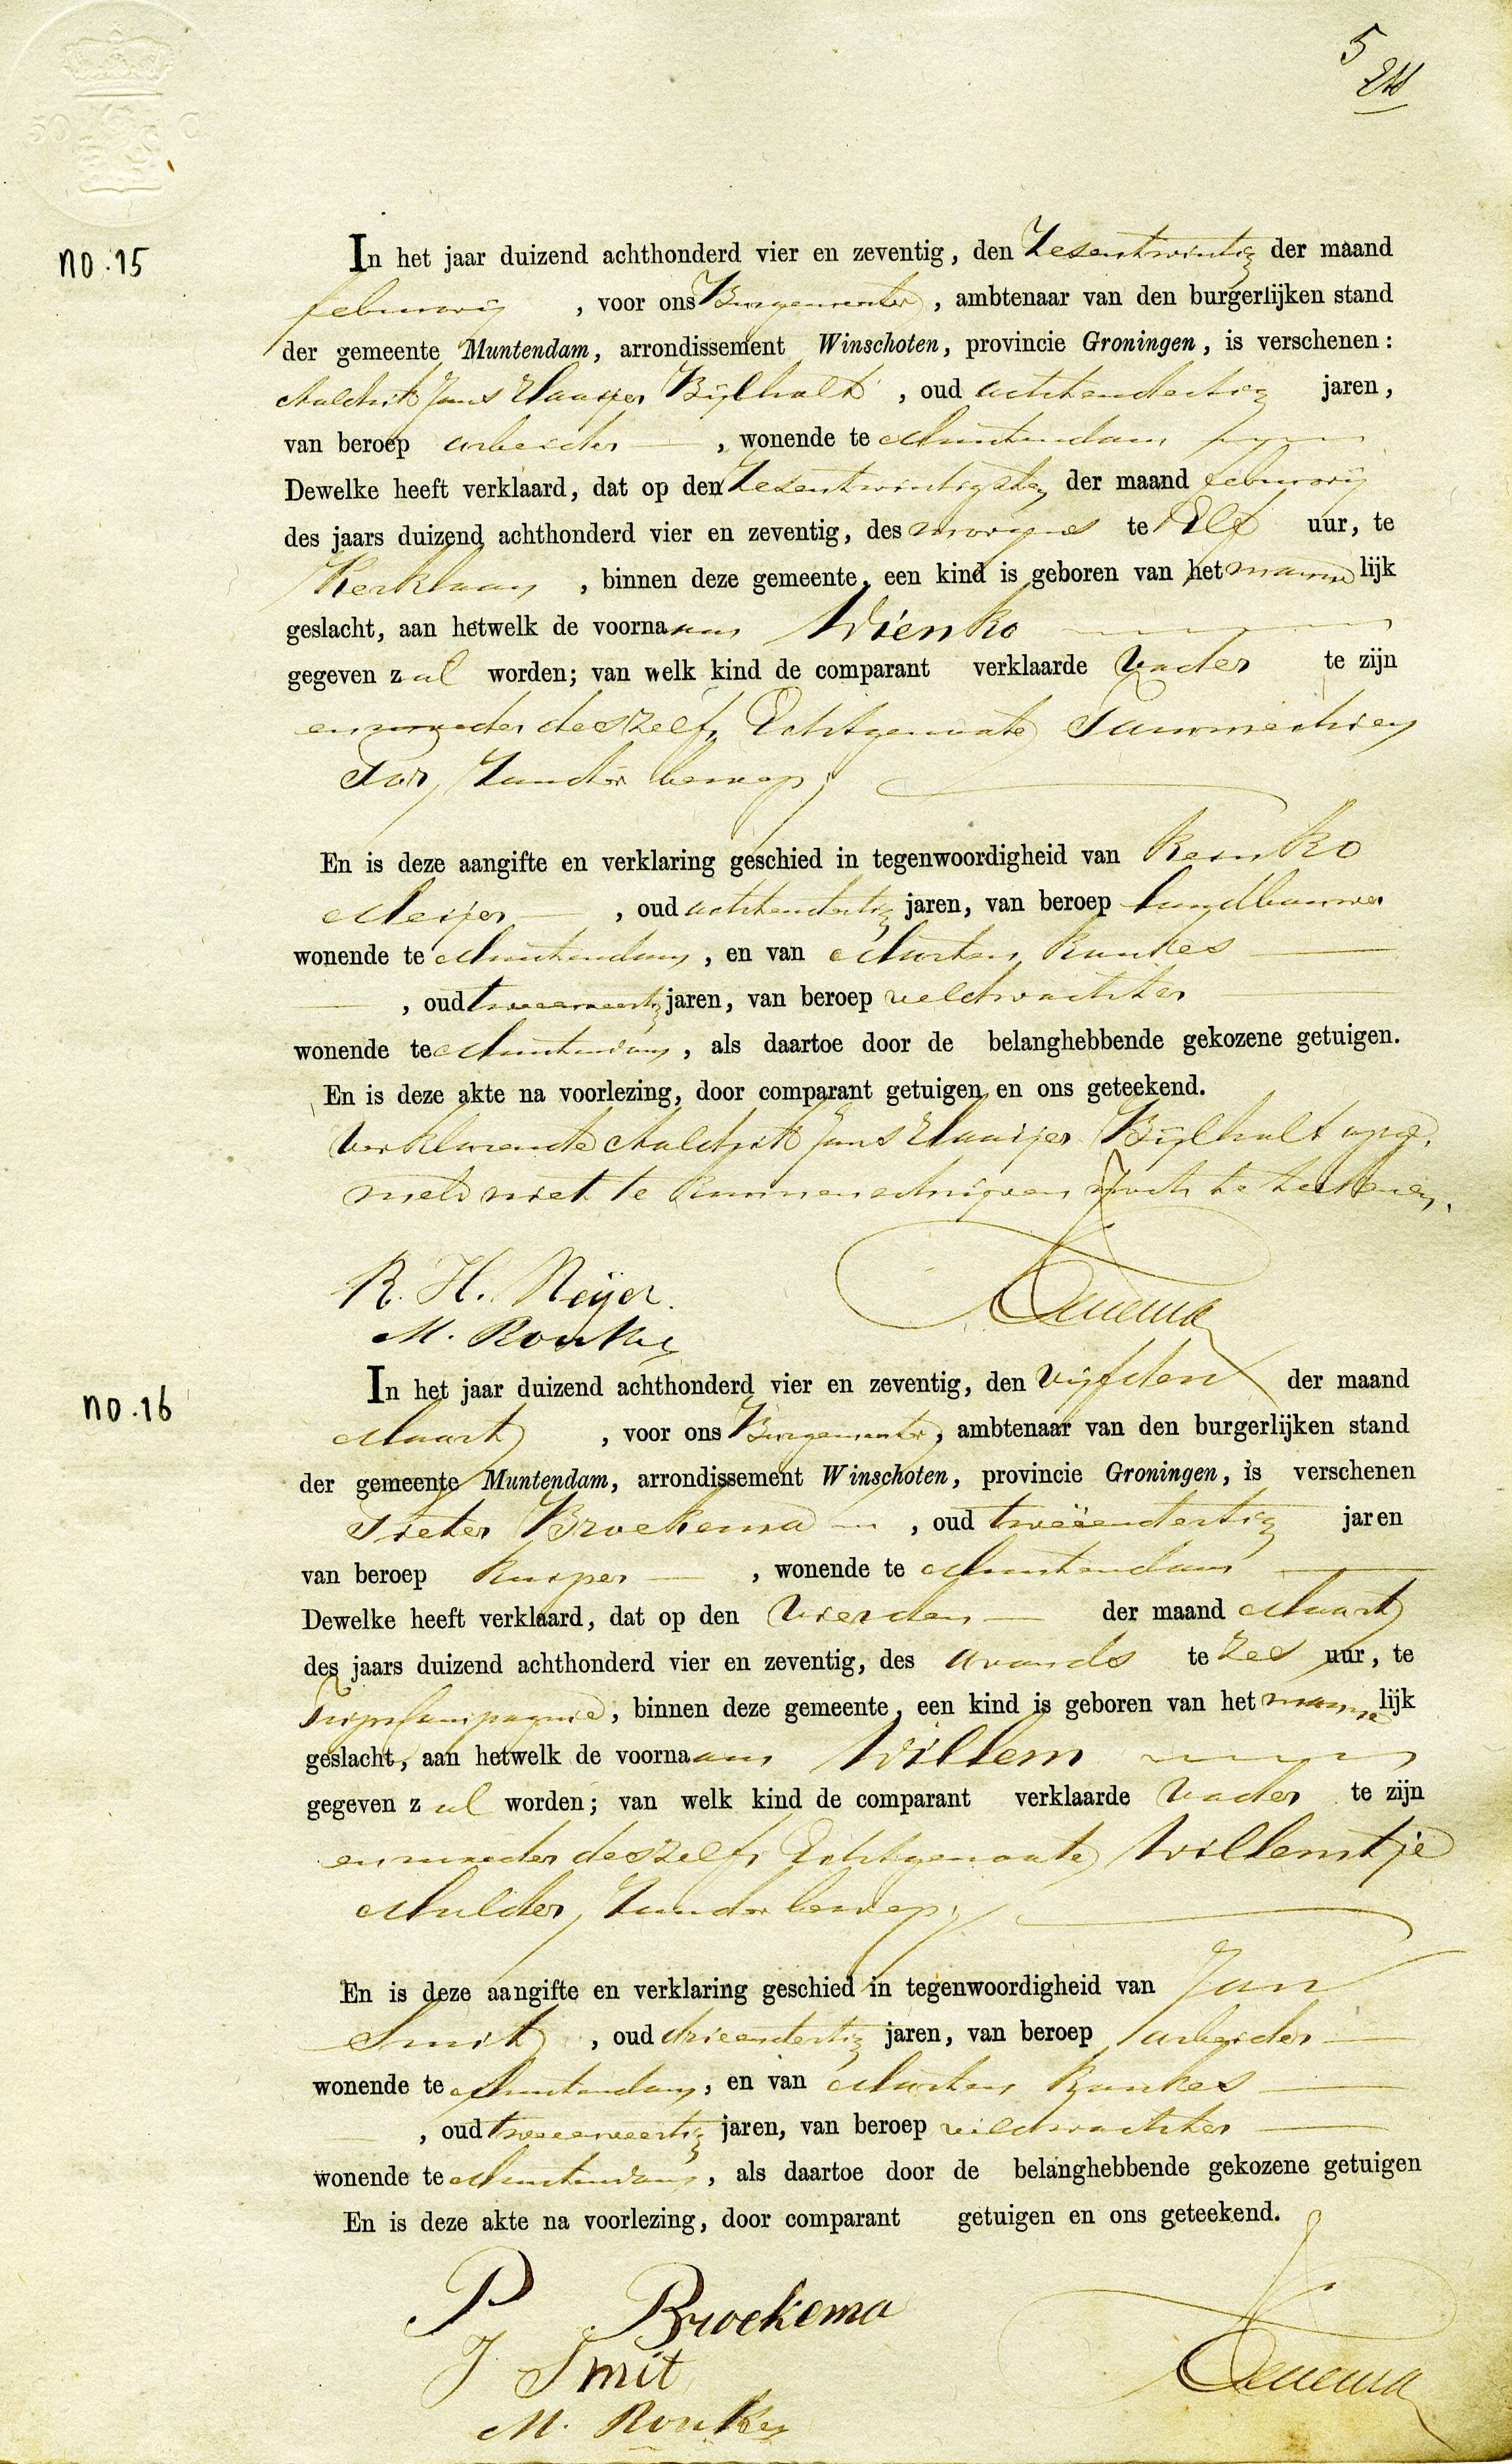 5
50 C
no. 15
In het jaar duizend achthonderd vier en zeventig, den Zesentwintig der maand
februarij , voor ons Burgemeester, ambtenaar van den burgerlijken stand
der gemeente Muntendam, arrondissement Winschoten, provincie Groningen, is verschenen:
Jans Klaasjes Bijlholt , oud achtendertig jaren,
van beroep arbeider , wonende te Muntendam
Dewelke heeft verklaard, dat op den Zesentwintigsten der maand februarij
des jaars duizend achthonderd vier en zeventig, des morgens te Elf uur, te
Kerklaan , binnen deze gemeente, een kind is geboren van het mannelijk
geslacht, aan hetwelk de voornaam Wienko
gegeven zal worden; van welk kind de comparant verklaarde Vader te zijn
en moeder deszelfs Echtgenoote Tammechien
Zonder beroep;
En is deze aangifte en verklaring geschied in tegenwoordigheid van Reinko
Meijer , oud achtendertig jaren, van beroep landbouwer
wonende te Muntendam, en van Marten Runkes
, oud tweeenveertig jaren, van beroep veldwachter
wonende te Muntendam, als daartoe door de belanghebbende gekozene getuigen.
En is deze akte na voorlezing, door comparant getuigen en ons geteekend.
Verklarende Jans Klaasjes Bijlholt opge-
meld niet te kunnen schrijven noch te teekenen.
R. H. Meijer.
M. Ronkes
no. 16
In het jaar duizend achthonderd vier en zeventig, den vijfden der maand
Maart , voor ons Burgemeester, ambtenaar van den burgerlijken stand
der gemeente Muntendam, arrondissement Winschoten, provincie Groningen, is verschenen
Pieter Broekema , oud tweeëndertig jaren
van beroep Kuiper , wonende te Muntendam
Dewelke heeft verklaard, dat op den Vierden der maand Maart
des jaars duizend achthonderd vier en zeventig, des avonds te Zes uur, te
Tripscompagnie, binnen deze gemeente, een kind is geboren van het mannelijk
geslacht, aan hetwelk de voornaam Willem
gegeven zal worden; van welk kind de comparant verklaarde Vader te zijn
en moeder deszelfs Echtgenoote Willemtje
Mulder, Zonder beroep;
En is deze aangifte en verklaring geschied in tegenwoordigheid van Jan
Smit , oud drieendertig jaren, van beroep arbeider
wonende te Muntendam, en van Marten Runkes
, oud tweeenveertig jaren, van beroep veldwachter
wonende te Muntendam, als daartoe door de belanghebbende gekozene getuigen
En is deze akte na voorlezing, door comparant getuigen en ons geteekend.
P Broekema
J Smit
M. Ronkes